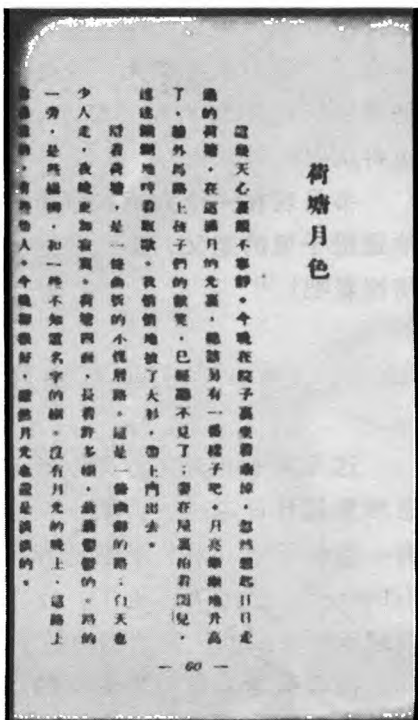 荷塘月色
這幾天心裏頗不寧靜。今晚在院子裏坐着乘涼,忽然想起日日走
過的荷塘,在這滿月的光裏,總該另有一番樣子吧。月亮漸漸地升高
了,牆外馬路上孩子們的歡笑,已經聽不見了;妻在屋裏拍着閏兒,
迷迷糊糊地哼着眠歌。我悄悄地披了大衫,帶上門出去。
沿着荷塘,是一條曲折的小煤屑路。這是一條幽僻的路;白天也
少人走,夜晚更加寂寞。荷塘四面,長着許多樹,蓊蓊鬱鬱的。路的
一旁,是些楊柳,和一些不知道名字的樹。沒有月光的晚上,這路上
陰森森的,有些怕人。今晚却很好,雖然月光也還是淡淡的。
— 60 —